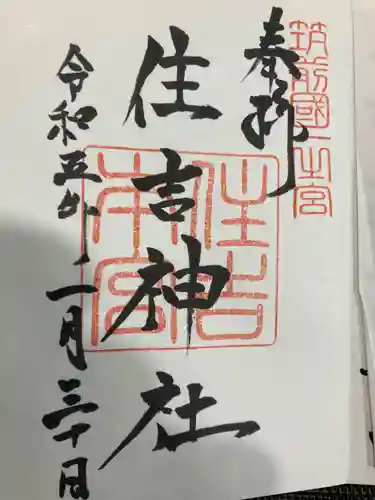 奉拝
筑前國一之宮
住吉神社
住吉本宮
令和五年一月三十日